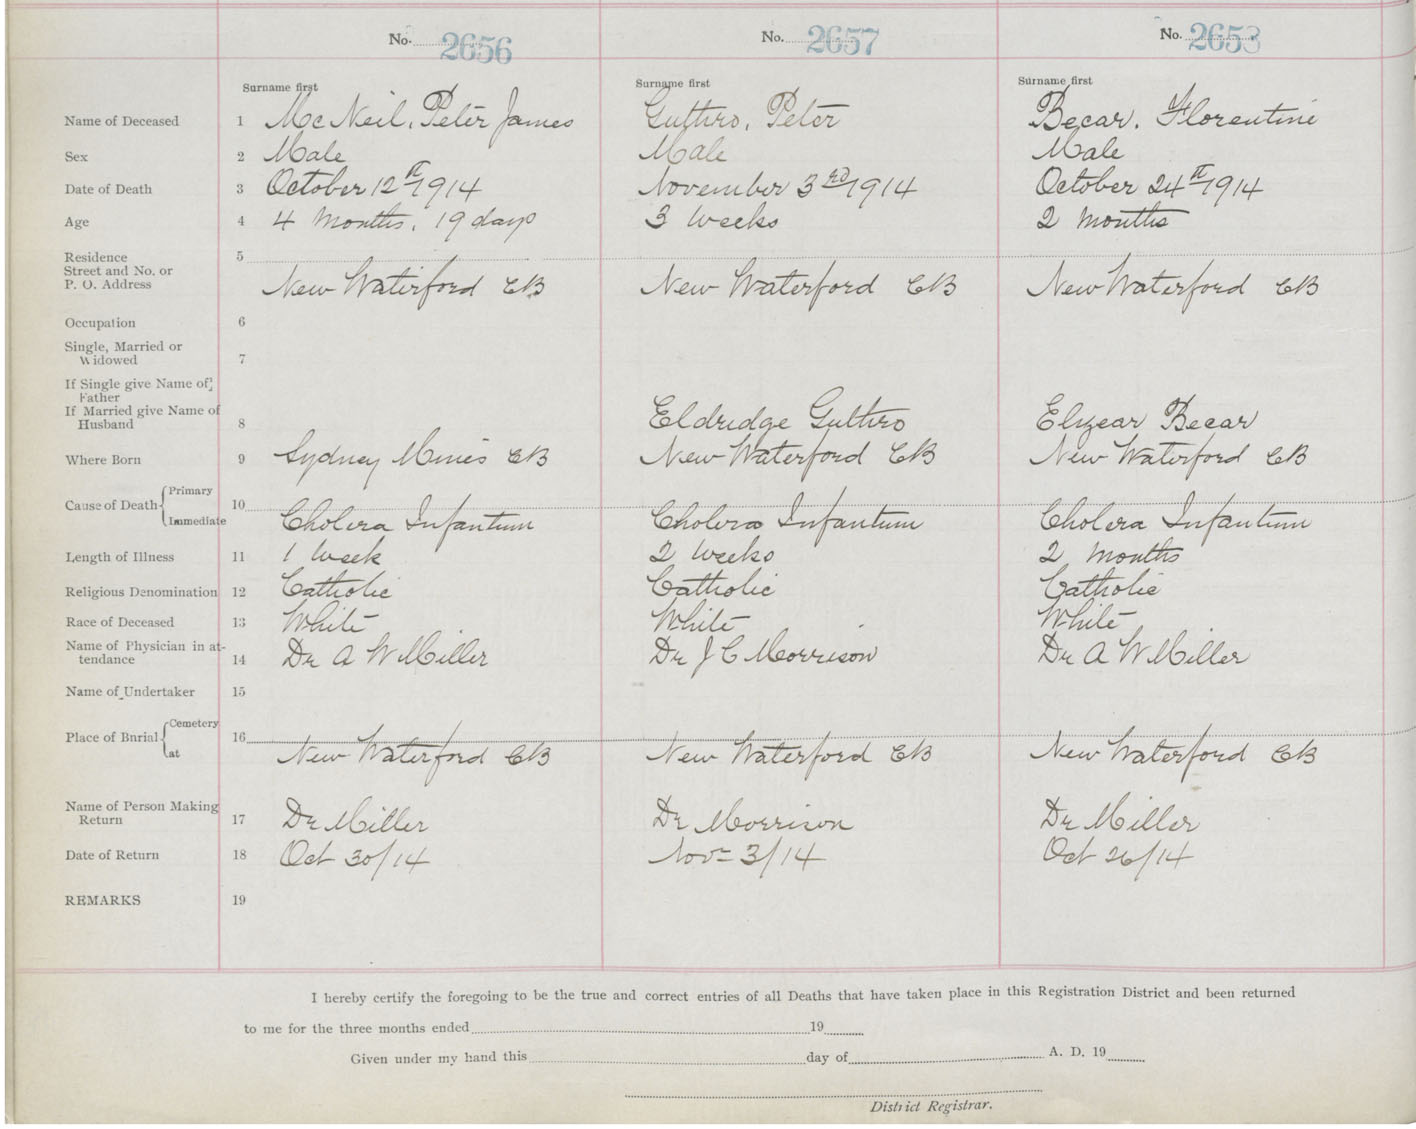 No. 2656 No. 2657 No. 2658
Surname first Surname first Surname first
Name of Deceased 1 McNeil, Peter James Guthro, Peter Becar, Florentine
Sex 2 Male Male Male
Date of Death 3 October 12th 1914 November 3rd 1914 October 24th 1914
Age 4 4 Months, 19 days 3 Weeks 2 Months
Residence 5
Street and No. or
P. O. Address New Waterford CB New Waterford CB New Waterford CB
Occupation 6
Single, Married or
Widowed 7
If Single give Name of
Father
If Married give Name of
Husband 8 Eldridge Guthro Elyear Becar
Where Born 9 Sydney Mines CB New Waterford CB New Waterford CB
Primary
Cause of Death 10
Immediate Cholera Infantum Cholera Infantum Cholera Infantum
Length of Illness 11 1 Week 2 Weeks 2 Months
Religious Denomination 12 Catholic Catholic Catholic
Race of Deceased 13 White White White
Name of Physician in at-
tendance 14 Dr A W Miller Dr J C Morrison Dr A W Miller
Name of Undertaker 15
Cemetery
Place of Burial 16
at New Waterford CB New Waterford CB New Waterford CB
Name of Person Making
Return 17 Dr Miller Dr Morrison Dr Miller
Date of Return 18 Oct 30/14 Nov 3/14 Oct 26/14
REMARKS 19
I hereby certify the foregoing to be the true and correct entries of all Deaths that have taken place in this Registration District and been returned
to me for the three months ended 19
Given under my hand this day of A. D. 19
District Registrar.